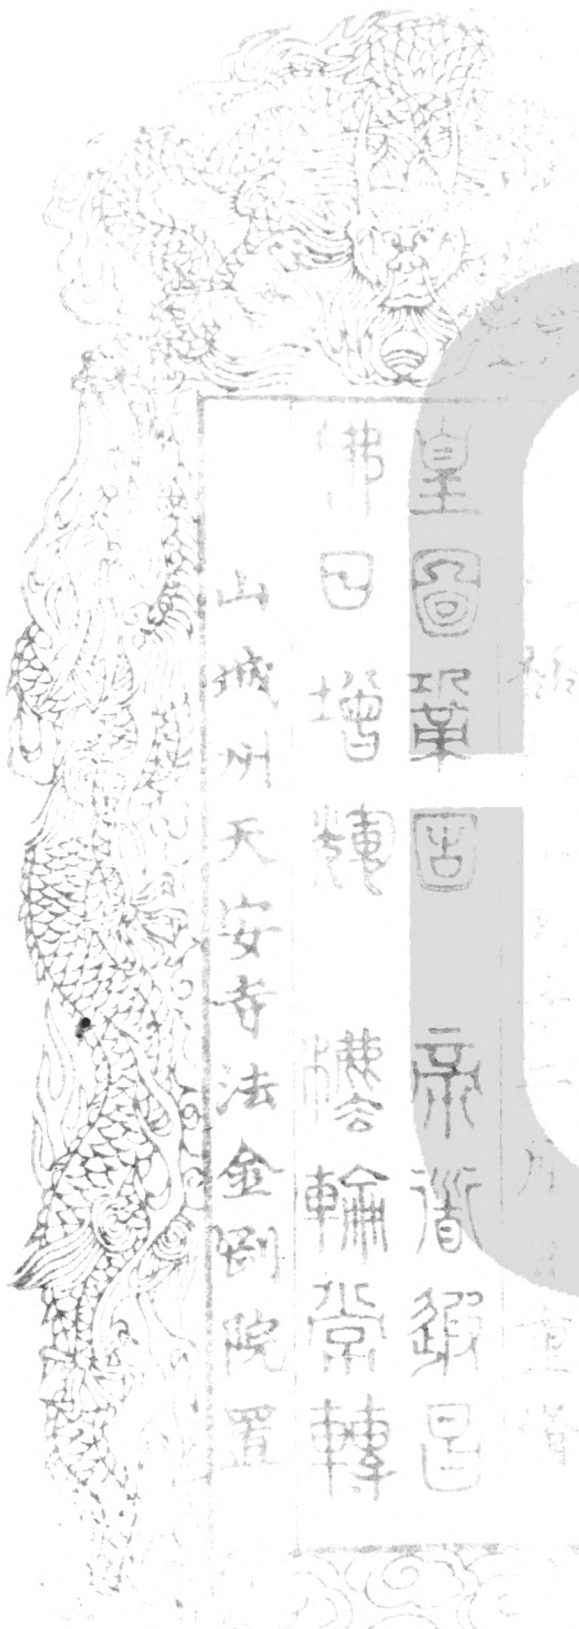 皇圖鞏固　帝道遐昌
佛日增輝　法輪常轉
山城州天安寺法金剛院置